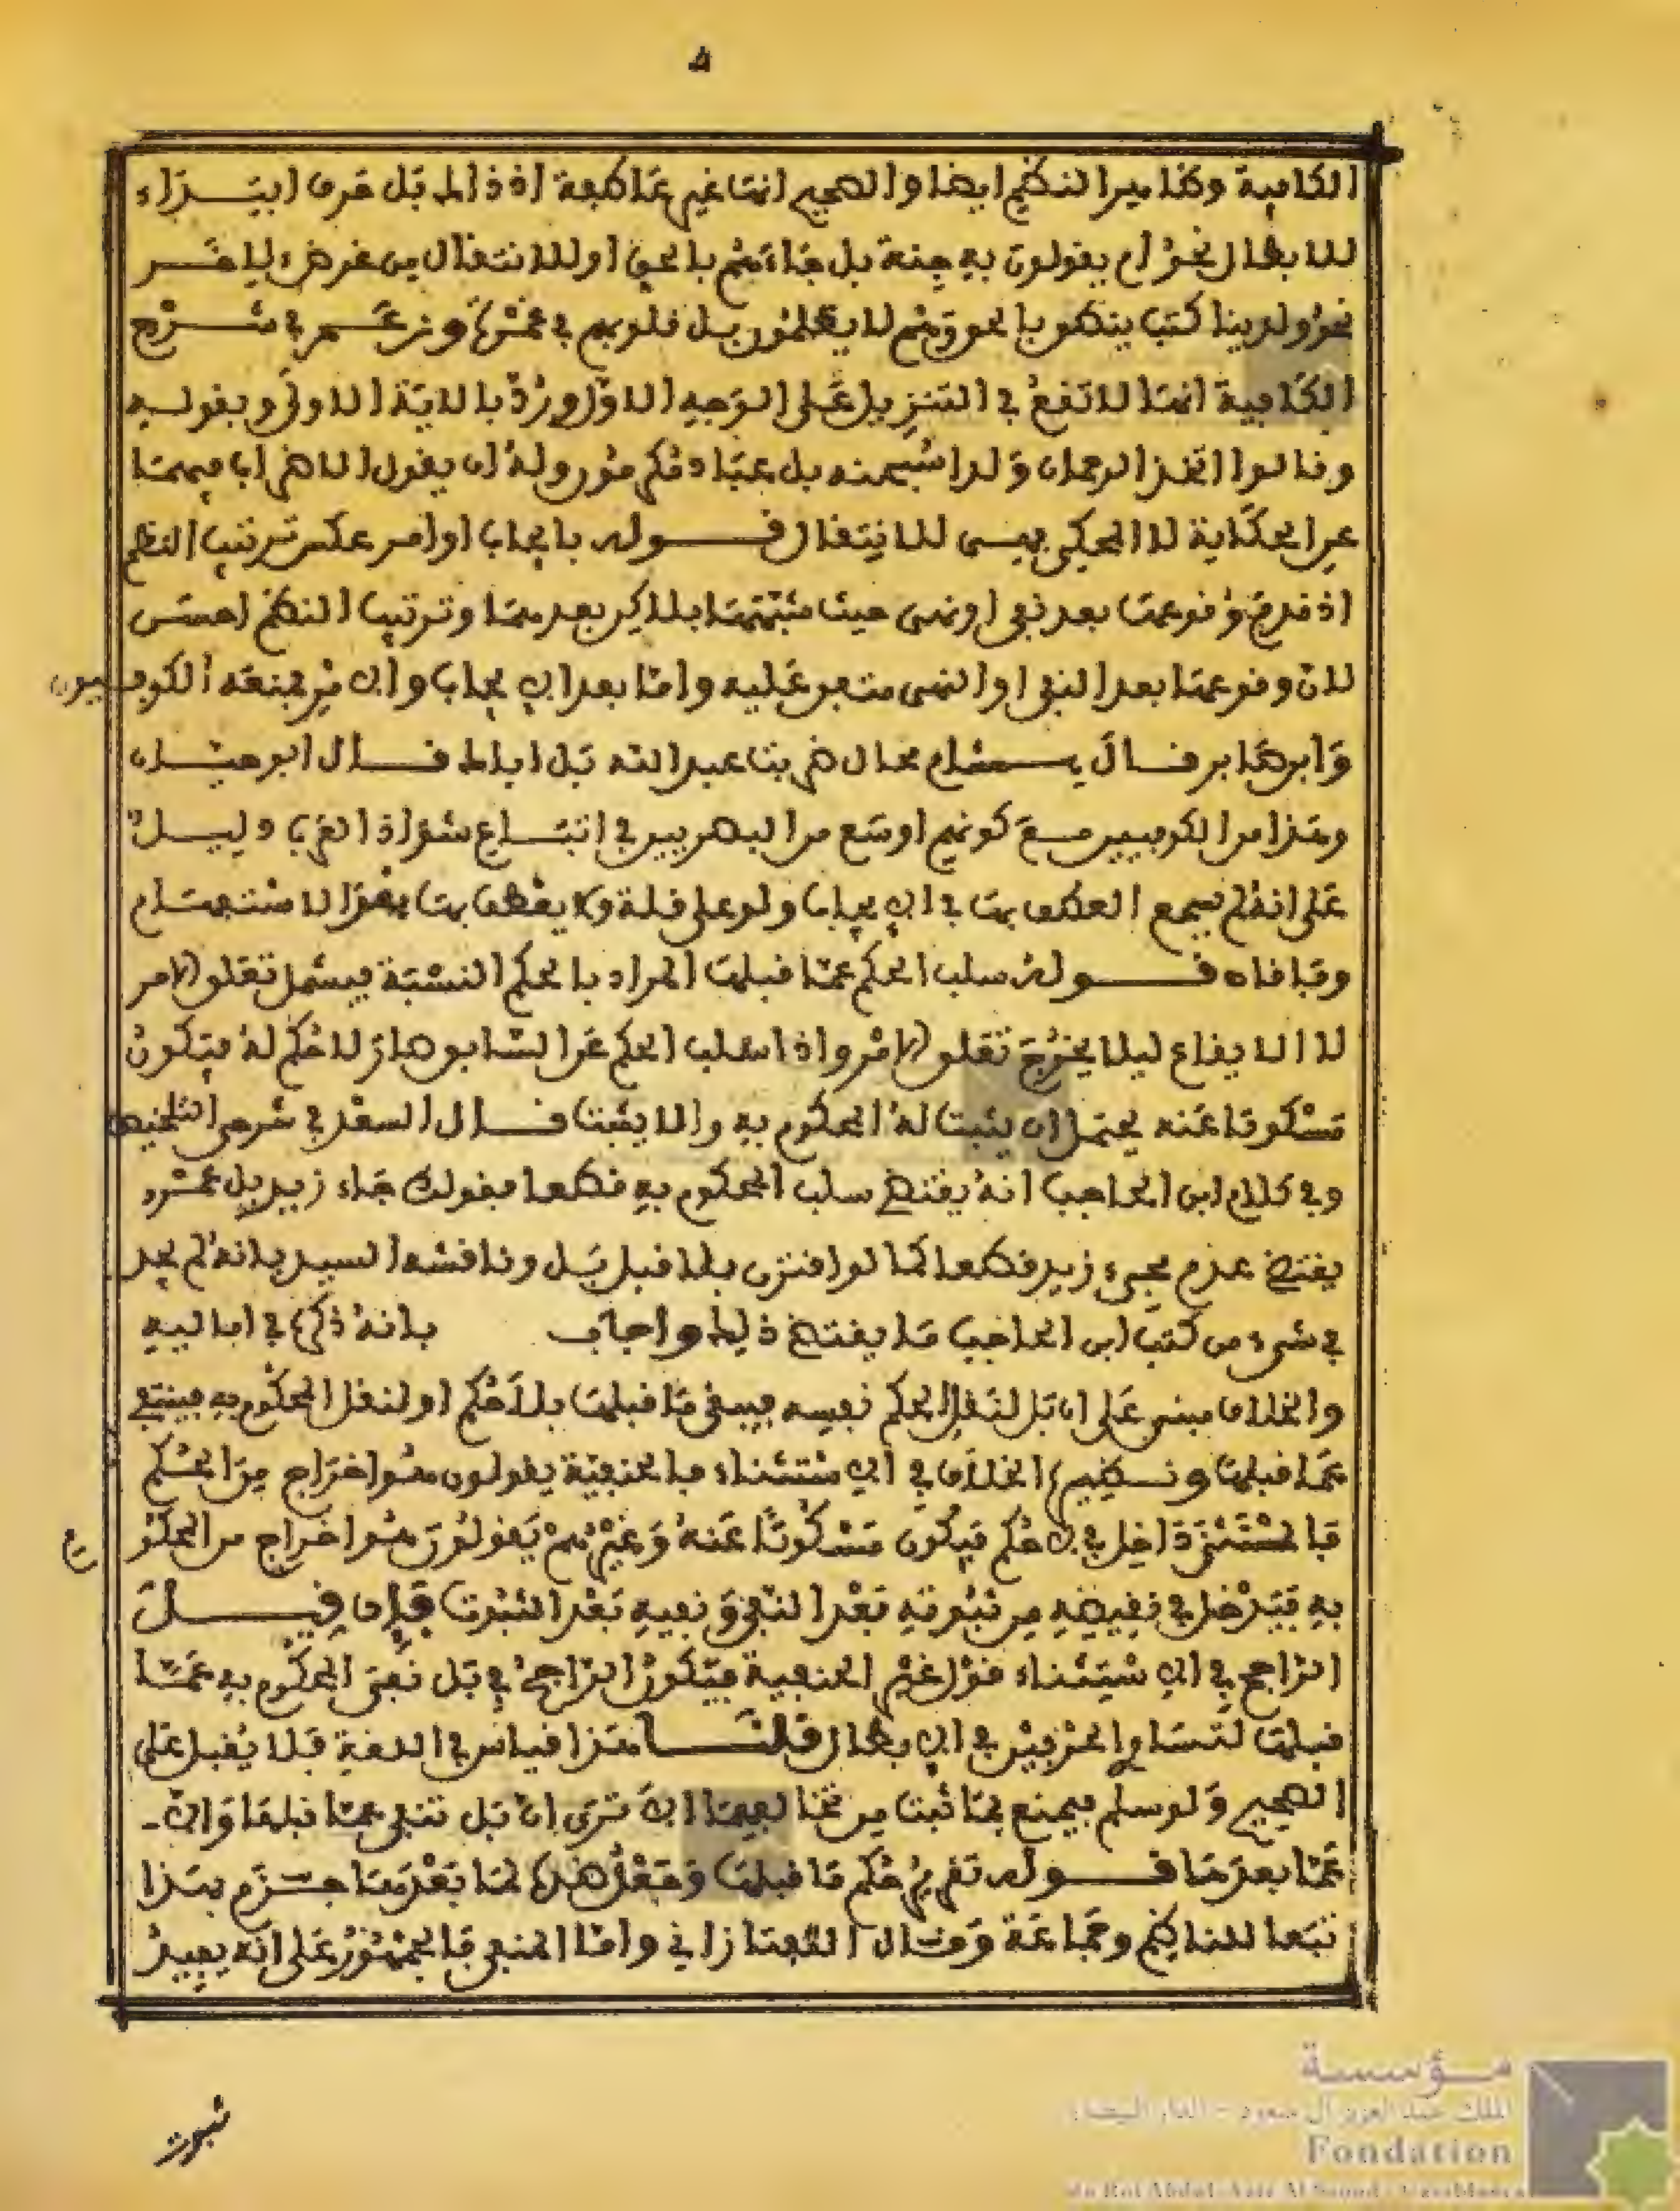 الكافية وظاهر النظم ايضا والصحيح انها غير عاطفة اذ ذاك بل حرف ابتداء
للابطال نحو ام يقولون به جنة بل جاءهم بالحق او للانتقال من غرض لاخر
نحو ولدينا كتب ينطق بالحق وهم لا يظلمون بل قلوبهم في غمرة وزعم في شرح
الكافية انها لا تقع في التنزيل على الوجه الاول ورد بالاية الاولى وبقوله
وقالوا اتخذ الرحمان ولدا سبحنه بل عباد مكرمون وله ان يقول الاضراب فيهما
عن الحكاية لا المحكي فهي للانتقال قوله بايجاب او امر عكس ترتيب النظم
اذ قدم وقوعها بعد نفي او نهي حيث مثبتهما بلاكن بعدهما وترتيب النظم احسن
لان وقوعها بعد النفي او النهي متفق عليه واما بعد الايجاب والامر فمنعه الكوفيون
وابو جعفر قال هشام محال ضربت عبد الله بل اياك قال ابو حيان
وهذا من الكوفيين مع كونهم اوسع من البصريين في اتباع شواذ العرب دليل
على انه لم يسمع العطف بها في الايجاب ولو على قلة ولا يعطف بها بعد الاستفهام
وفاقا قوله سلب الحكم عما قبلها المراد بالحكم النسبة فيشمل تعلق الامر
لا الايقاع ليلا يخرج تعلق الامر واذا سلب الحكم عن السابق صار لا حكم له فيكون
مسكوتا عنه يحتمل ان يثبت له المحكوم به والا يثبت قال السعد في شرحي التلخيص
وفي كلام ابن الحاجب انه يقتضي سلب المحكوم به قطعا فقولك جاء زيد بل عمرو
يقتضي عدم مجيء زيد قطعا كما لو اقترن بلا قبل بل وناقشه السيد بانه لم يجد
في شيء من كتب ابن الحاجب ما يقتضي ذلك واجاب بانه ذكره في اماليه
والخلاف مبني على ان بل لنقل الحكم نفسه فيبقى ما قبلها بلا حكم او لنقل المحكوم به فينتفي
عما قبلها ونظيره الخلاف في الاستثناء فالحنفية يقولون هو اخراج من الحكم
فالمستثنى داخل في لا حكم فيكون مسكوتا عنه وغيرهم يقولون هو اخراج من المحكوم
به فيدخل في نقيضه من ثبوته بعد النفي ونفيه بعد الثبوت فان قيل
الراجح في الاستثناء قول غير الحنفية فيكون الراجح في بل نفي المحكوم به عما
قبلها لتساوي الحرفين في الابطال قلنا هذا قياس في اللغة فلا يقبل على
الصحيح ولو سلم فيمنع بما ثبت من تخالفهما الا ترى ان بل تنفي عما قبلها والا
عما بعدها قوله تقرير حكم ما قبلها وجعل ضده لما بعدها جزم بهذا
تبعا للناظم وجماعة وقال التفتازاني واما المنفي فالجمهور على انه يفيد
ثبوت
مؤسسة
الملك عبد العزيز آل سعود - الدار البيضاء
Fondation
du Roi Abdul-Aziz Al Saoud - Casablanca